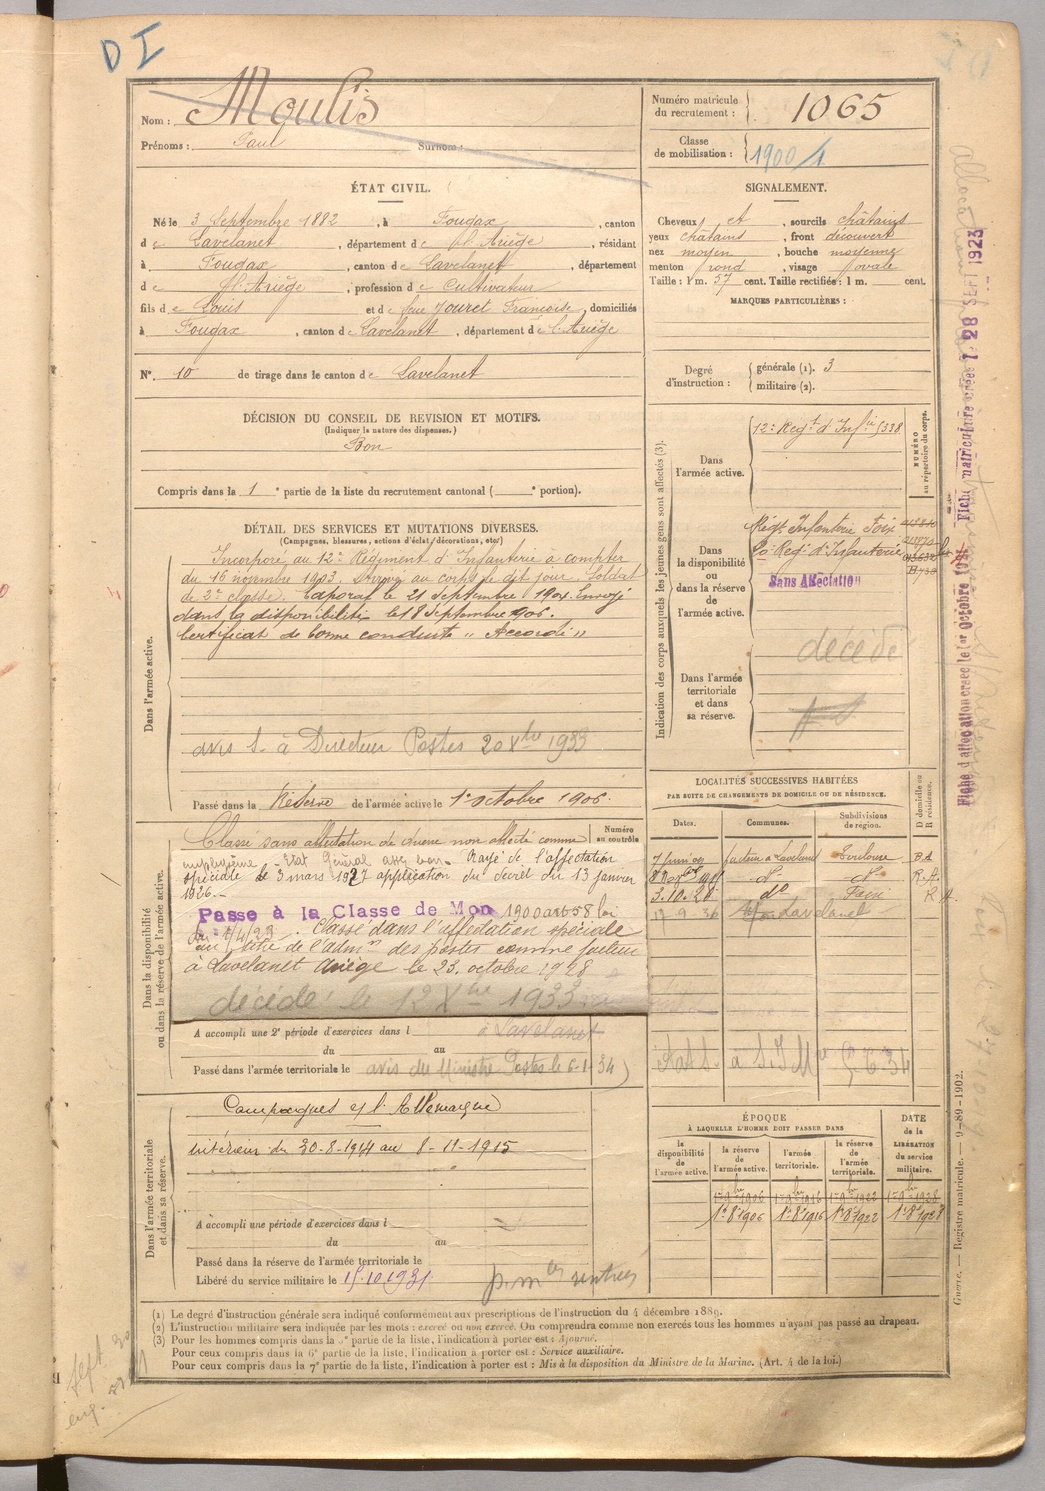 D I
Nom : Moulis
Prénoms : Paul Surnom :
Numéro matricule du recrutement : 1065
Classe de mobilisation : 1900/1
ÉTAT CIVIL.
Né le 3 Septembre 1882, à Fougax, canton
de Lavelanet, département de l'Ariège, résidant
à Fougax, canton de Lavelanet, département
de l'Ariège, profession de Cultivateur
fils de Louis et de feue Jouret Françoise, domiciliés
à Fougax, canton de Lavelanet, département de l'Ariège
N° 10 de tirage dans le canton de Lavelanet
SIGNALEMENT.
Cheveux et, sourcils châtains
yeux châtains, front découvert
nez moyen, bouche moyenne
menton rond, visage ovale
Taille : 1 m. 57 cent. Taille rectifiée : 1 m. cent.
MARQUES PARTICULIÈRES :
Degré d'instruction : générale (1). 3
militaire (2).
DÉCISION DU CONSEIL DE REVISION ET MOTIFS.
(Indiquer la nature des dispenses.)
Bon
Compris dans la 1e partie de la liste du recrutement cantonal ( e portion).
DÉTAIL DES SERVICES ET MUTATIONS DIVERSES.
(Campagnes, blessures, actions d'éclat, décorations, etc.)
Dans l'armée active.
Incorporé au 12e Régiment d'Infanterie à compter
du 16 novembre 1903. Arrivé au corps le dit jour. Soldat
de 2e classe. Caporal le 21 Septembre 1904. Envoyé
dans la disponibilité le 18 Septembre 1906.
Certificat de bonne conduite "Accordé"
avis S. à Directeur Postes 20 Xbre 1933
Passé dans la Réserve de l'armée active le 1er octobre 1906.
Indication des corps auxquels les jeunes gens sont affectés (3).
NUMÉRO au répertoire du corps.
Dans l'armée active.
12e Regt d'Infie 5338
Dans la disponibilité ou dans la réserve de l'armée active.
Régt Infanterie Foix
Regt d'Infanterie
Sans Affectation
Dans l'armée territoriale et dans sa réserve.
décédé
Dans la disponibilité ou dans la réserve de l'armée active.
Numéro au contrôle
Classé sans affectation de classe non affecté comme
Rayé de l'affectation
spéciale le 3 mars 1927 application du décret du 13 janvier
1926.
Passe à la Classe de Mon 1900 art 58 loi
du 1/4/23. Classé dans l'affectation spéciale
au titre de l'admon des postes comme facteur
à Lavelanet Ariège le 23 octobre 1928
décédé le 12 Xbre 1933
à Lavelanet
A accompli une 2e période d'exercices dans l
du au
Passé dans l'armée territoriale le
avis du Ministre Postes le 6-1-34)
LOCALITÉS SUCCESSIVES HABITÉES
PAR SUITE DE CHANGEMENTS DE DOMICILE OU DE RÉSIDENCE.
Dates. Communes. Subdivisions de région. D domicile ou R résidence.
facteur à Lavelanet Toulouse
3.10.28 do Foix R.A.
17-9-36 Lavelanet
Dans l'armée territoriale et dans sa réserve.
Campagnes c/ l'Allemagne
intérieur du 30-8-1914 au 8-11-1915
A accompli une période d'exercices dans l
du au
Passé dans la réserve de l'armée territoriale le
Libéré du service militaire le 15.10.1931
p. mles rentrées
ÉPOQUE
À LAQUELLE L'HOMME DOIT PASSER DANS
la disponibilité de l'armée active.
la réserve de l'armée active.
l'armée territoriale.
la réserve de l'armée territoriale.
DATE de la LIBÉRATION du service militaire.
1er 9bre 1906 1er 9bre 1916 1er 9bre 1922 1er 9bre 1928
1er 8e 1906 1er 8e 1916 1er 8e 1922 1er 8e 1928
(1) Le degré d'instruction générale sera indiqué conformément aux prescriptions de l'instruction du 4 décembre 1889.
(2) L'instruction militaire sera indiquée par les mots : exercé ou non exercé. On comprendra comme non exercés tous les hommes n'ayant pas passé au drapeau.
(3) Pour les hommes compris dans la e partie de la liste, l'indication à porter est : Ajourné.
Pour ceux compris dans la 6e partie de la liste, l'indication à porter est : Service auxiliaire.
Pour ceux compris dans la 7e partie de la liste, l'indication à porter est : Mis à la disposition du Ministre de la Marine. (Art. 4 de la loi.)
Guerre. — Registre matricule. — 9-89-1902.
Fiche d'affectation créée le 1er Octobre 1921
Fiche matriculaire créée le 28 SEPT 1923